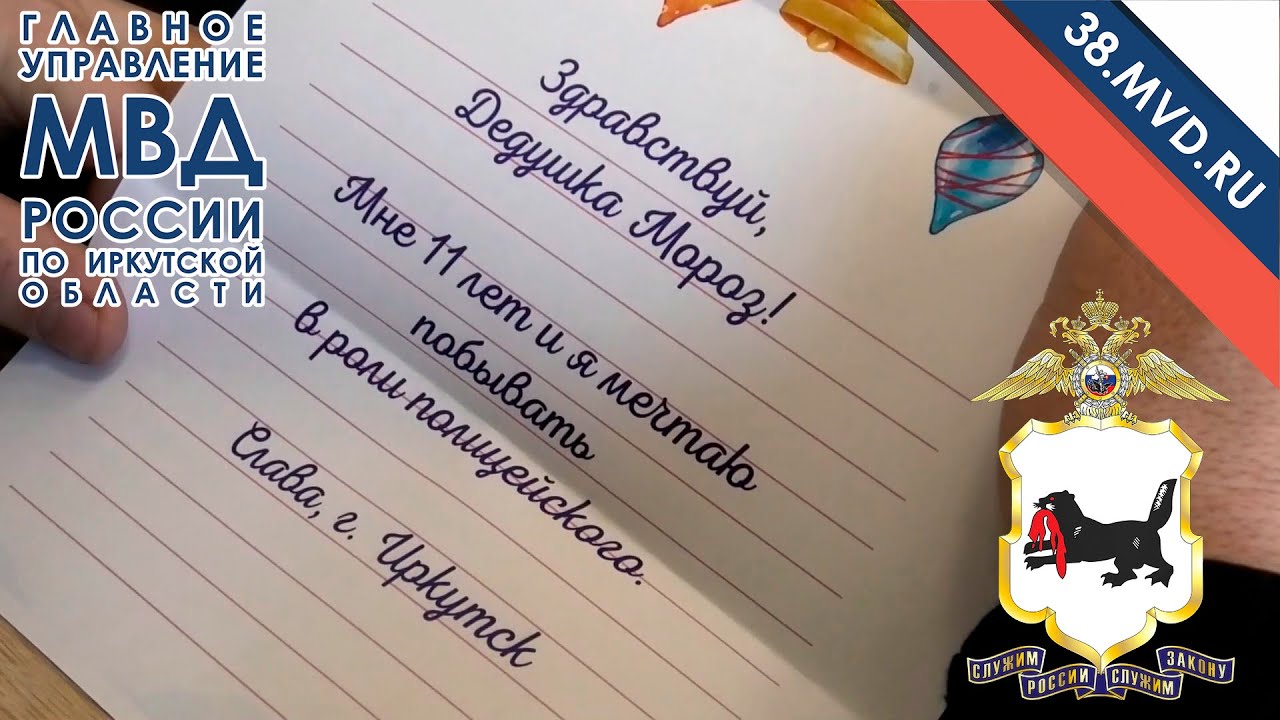 ГЛАВНОЕ
УПРАВЛЕНИЕ
МВД
РОССИИ
ПО ИРКУТСКОЙ
ОБЛАСТИ
38.MVD.RU
Здравствуй,
Дедушка Мороз!
Мне 11 лет и я мечтаю
побывать
в роли полицейского.
Слава, г. Иркутск
СЛУЖИМ РОССИИ СЛУЖИМ ЗАКОНУ